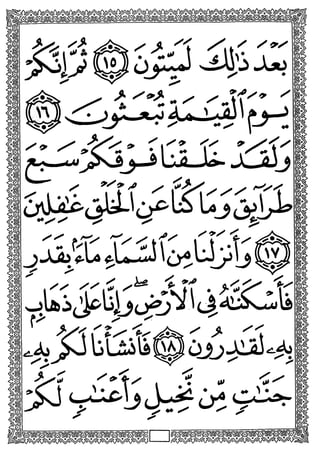 بَعْدَ ذَٰلِكَ لَمَيِّتُونَ ١٥ ثُمَّ إِنَّكُمْ
يَوْمَ ٱلْقِيَٰمَةِ تُبْعَثُونَ ١٦
وَلَقَدْ خَلَقْنَا فَوْقَكُمْ سَبْعَ
طَرَآئِقَ وَمَا كُنَّا عَنِ ٱلْخَلْقِ غَٰفِلِينَ
١٧ وَأَنزَلْنَا مِنَ ٱلسَّمَآءِ مَآءًۢ بِقَدَرٍ
فَأَسْكَنَّٰهُ فِى ٱلْأَرْضِ ۖ وَإِنَّا عَلَىٰ ذَهَابٍۭ
بِهِۦ لَقَٰدِرُونَ ١٨ فَأَنشَأْنَا لَكُم بِهِۦ
جَنَّٰتٍ مِّن نَّخِيلٍ وَأَعْنَٰبٍ لَّكُمْ